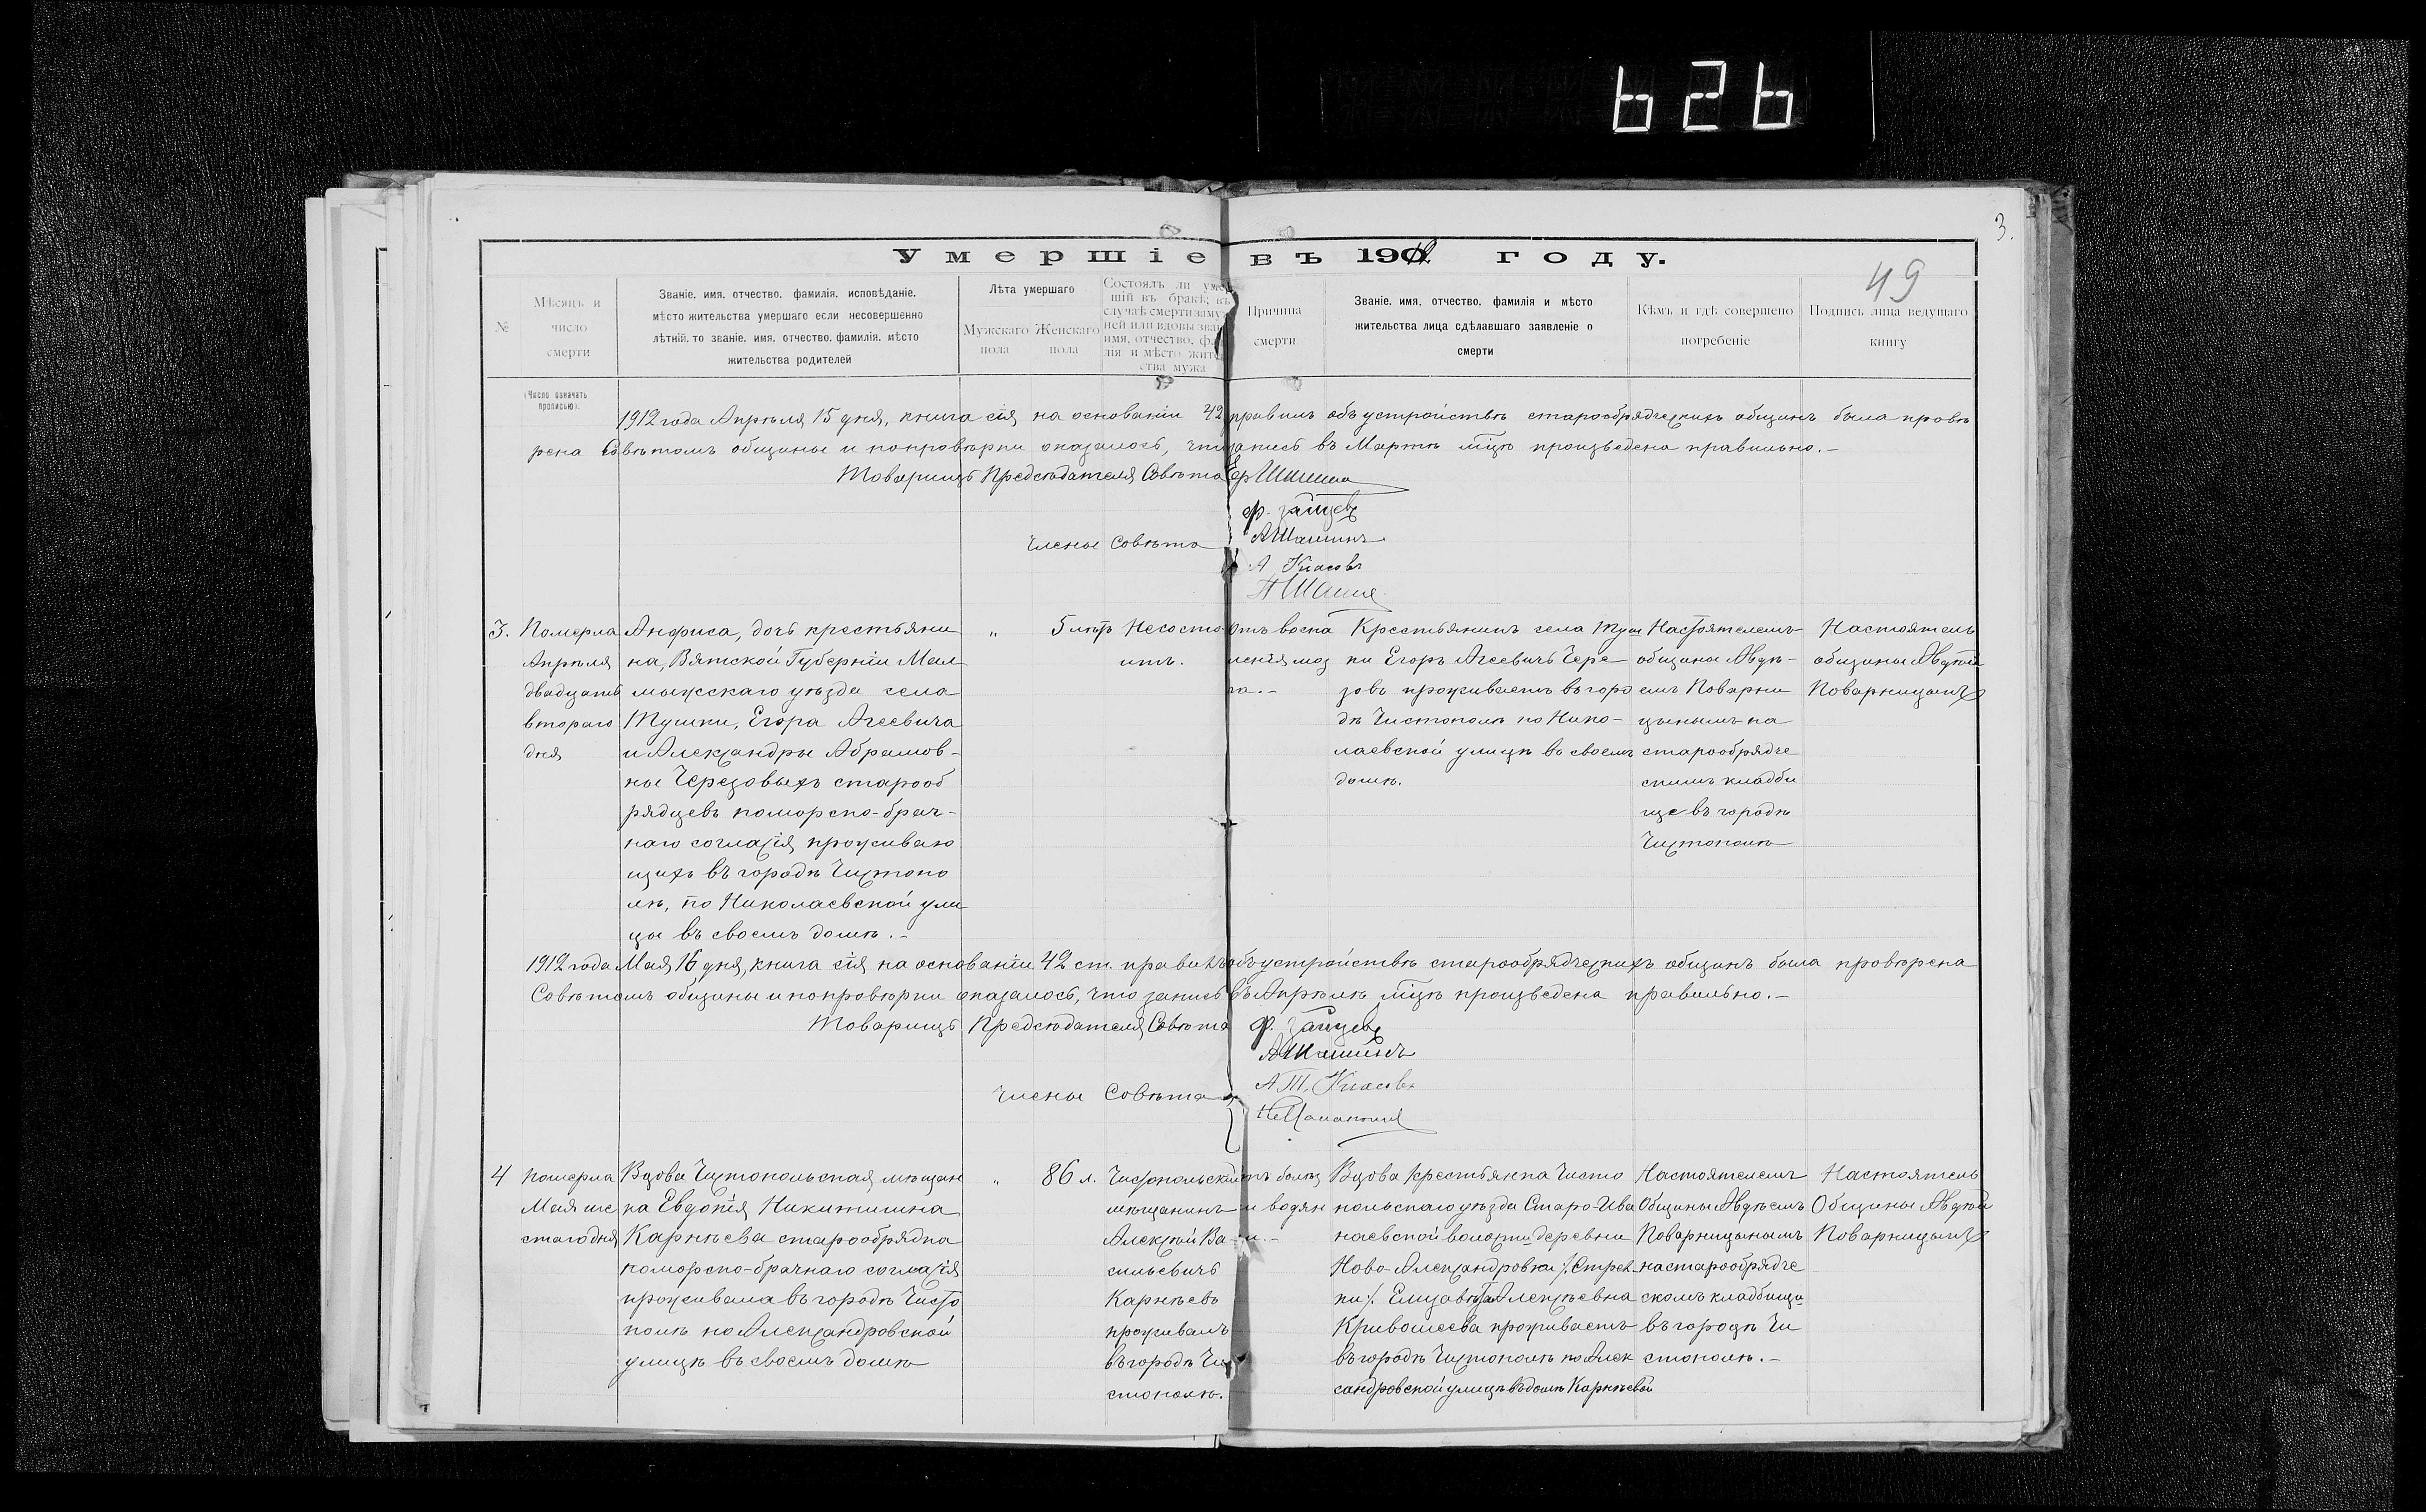 626
3.
Умершіе въ 1912 году.
49
№
Мѣсяцъ и
число
смерти
Званіе, имя, отчество, фамилія, исповѣданіе,
мѣсто жительства умершаго если несовершенно
лѣтній, то званіе, имя, отчество, фамилія, мѣсто
жительства родителей
Лѣта умершаго
Мужскаго пола
Женскаго пола
Состоялъ ли умер
шій въ бракѣ; въ
случаѣ смерти замуж
ней или вдовы зван
имя, отчество, фа
лія и мѣсто жите
ства мужа
Причина
смерти
Званіе, имя, отчество, фамилія и мѣсто
жительства лица сдѣлавшаго заявленіе о
смерти
Кѣмъ и гдѣ совершено
погребеніе
Подпись лица ведущаго
книгу
(Число означать
прописью).
1912 года Апрѣля 15 дня, книга сія на основаніи 42 правилъ объ устройствѣ старообрядческихъ общинъ была провѣ
рена Совѣтомъ общины и попровѣрки оказалось, что запись въ Мартѣ мцѣ произведена правильно.-
Товарищъ Предсѣдателя Совѣта
Ф. Зайцевъ
Члены Совѣта
АШашинъ
3.
Померла
Апрѣля
двадцать
второго
дня
Анфиса, дочь крестьяни
на, Вятской Губерніи Мал
мыжскаго уѣзда села
Тушки, Егора Агеевича
и Александры Абрамов-
ны Черезовыхъ старооб
рядцевъ поморско-брач-
наго согласія проживаю
щихъ въ городѣ Чистопо
лѣ, по Николаевской ули
цы въ своемъ домѣ.-
"
5 лѣтъ
Несосто
итъ.
Отъ воспа
ленія моз
га.-
Крестьянинъ села Туш
ки Егоръ Агеевичъ Чере
зовъ проживаетъ въ горо
дѣ Чистополѣ по Нико-
лаевской улицѣ въ своемъ
домѣ.
Настоятелемъ
общины Авдѣ-
емъ Поварни
цынымъ на
старообрядче
скимъ кладби
ще въ городѣ
Чистополѣ
Настоятель
общины Авдѣй
Поварницынъ
1912 года Мая 16 дня, книга сія на основаніи 42 ст. правилъ объ устройствѣ старообрядческихъ общинъ была провѣрена
Совѣтомъ общины и попровѣрки оказалось, что запись въ Апрѣлѣ мцѣ произведена правильно.-
Товарищъ Предсѣдателя Совѣта
Ф. Зайцевъ
АШашинъ
Члены Совѣта
4
померла
Мая ше
стаго дня
Вдова Чистопольская мѣщан
ка Евдокія Никитишна
Карнѣева старообрядка
поморско-брачнаго согласія
проживала въ городѣ Чисто
полѣ по Александровской
улицѣ въ своемъ домѣ
"
86 л.
Чистопольскій
мѣщанинъ
Алексѣй Ва
сильевичъ
Карнѣевъ
проживалъ
въ городѣ Чи
стополѣ.
и водян
Вдова крестьянка Чисто
польскаго уѣзда Старо-Ива
наевской волости деревни
Ново-Александровки /. Стрел
ки/. Елизавѣта Алексѣевна
Кривошеева проживаетъ
въ городѣ Чистополѣ по Алек
сандровской улицѣ въ домѣ Карнѣевой
Настоятелемъ
Общины Авдѣемъ
Поварницынымъ
на старообрядче
скомъ кладбищѣ
въ городѣ Чи
стополѣ.-
Настоятель
Общины Авдѣй
Поварницынъ